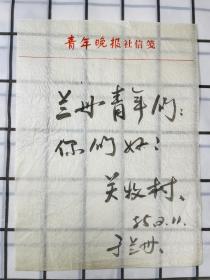 青年晚报社信笺
兰州青年们:
你们好!
关牧村、
85.2.11.
于兰州、